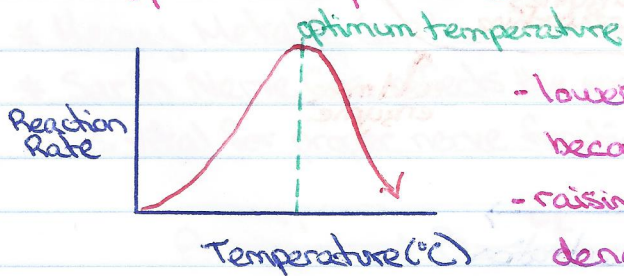 optimum temperature
Reaction
Rate
Temperature (°C)
- lower
beco
- raisin
dena